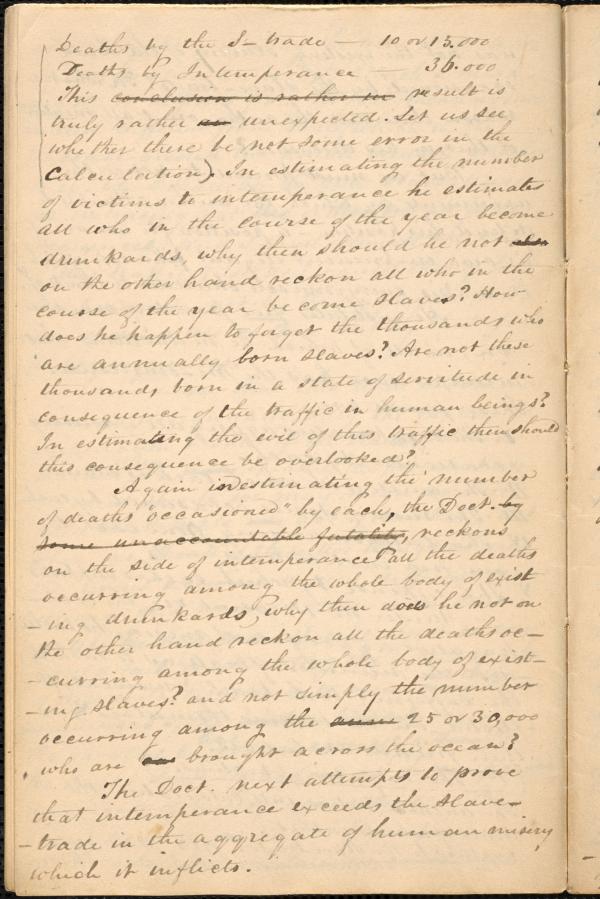 Deaths by the S- trade — 10 or 15.000
Deaths by Intemperance — 36.000
This conclusion is rather un result is
truly rather unexpected. Let us see
whether there be not some error in the
calculation). In estimating the number
of victims to intemperance he estimates
all who in the course of the year become
drunkards, why then should he not
on the other hand reckon all who in the
course of the year become slaves? How
does he happen to forget the thousands who
are annually born slaves? Are not these
thousands born in a state of servitude in
consequence of the traffic in human beings?
In estimating the evil of this traffic then should
this consequence be overlooked?
Again in estimating the number
of deaths "occasioned" by each, the Doct. by
some unaccountable fatality, reckons
on the side of intemperance all the deaths
occurring among the whole body of exist
-ing drunkards, why then does he not on
the other hand reckon all the deaths oc-
-curring among the whole body of exist-
-ing slaves? and not simply the number
occurring among the 25 or 30,000
who are brought across the ocean?
The Doct. next attempts to prove
that intemperance exceeds the slave-
-trade in the aggregate of human misery
which it inflicts.